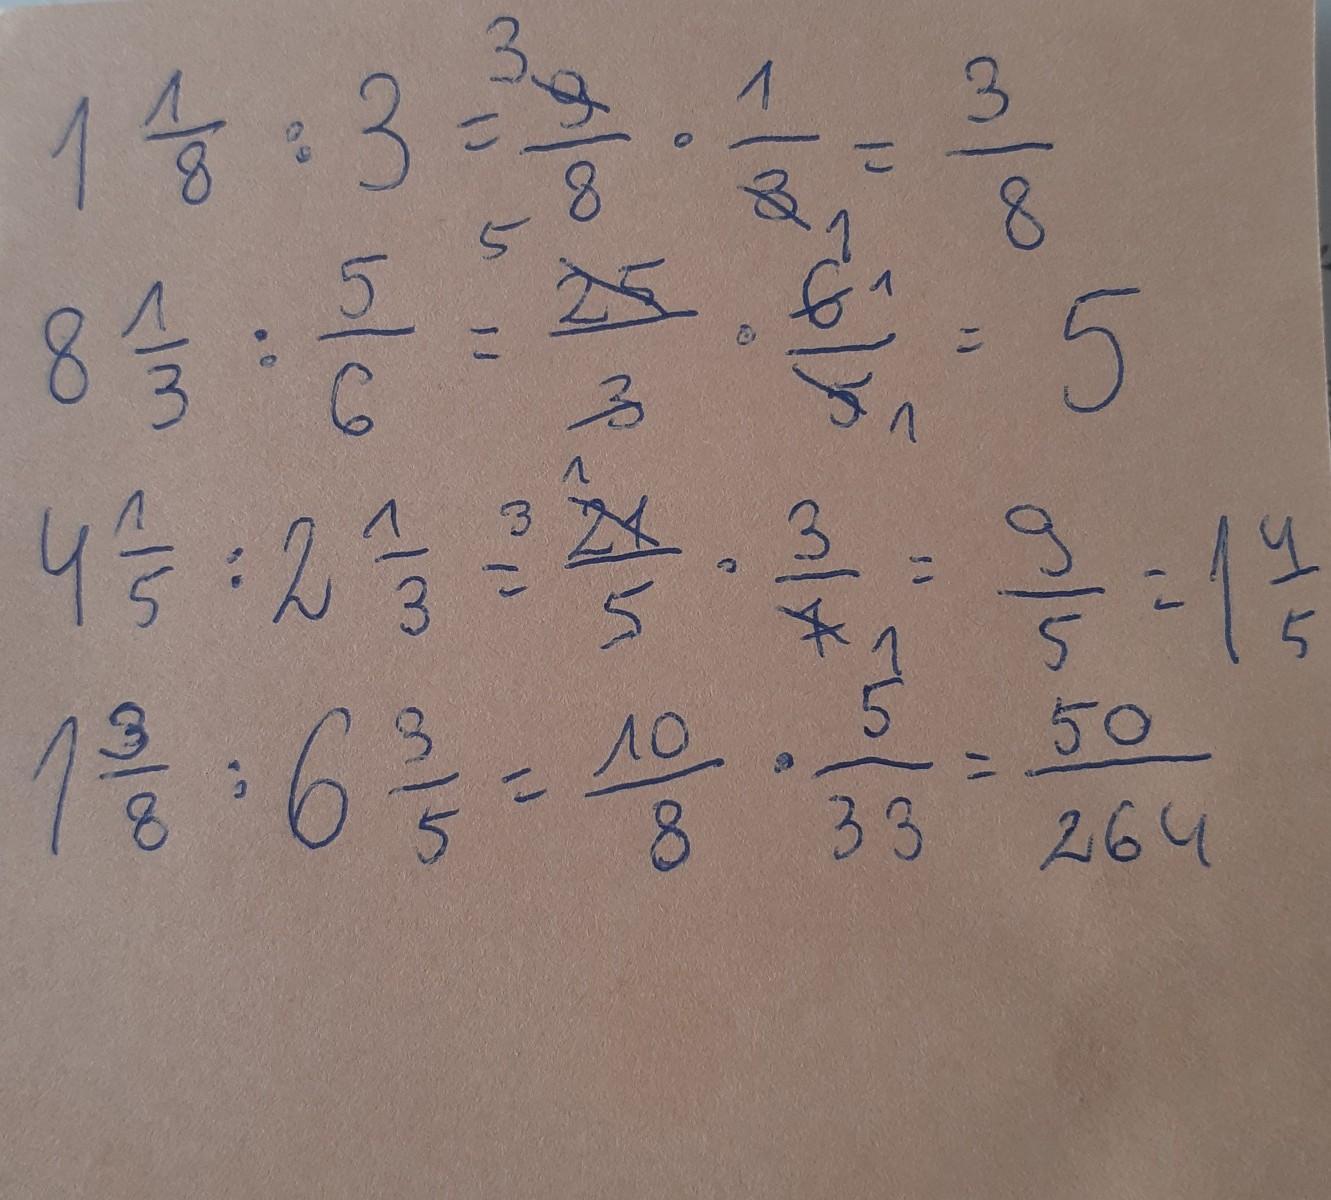 1 1/8 : 3 = 3 9/8 · 1/3 1 = 3/8
8 1/3 : 5/6 = 5 25/3 · 6 1/5 1 = 5
4 1/5 : 2 1/3 = 3 21/5 · 3/7 1 = 9/5 = 1 4/5
1 3/8 : 6 3/5 = 10/8 · 5/33 = 50/264